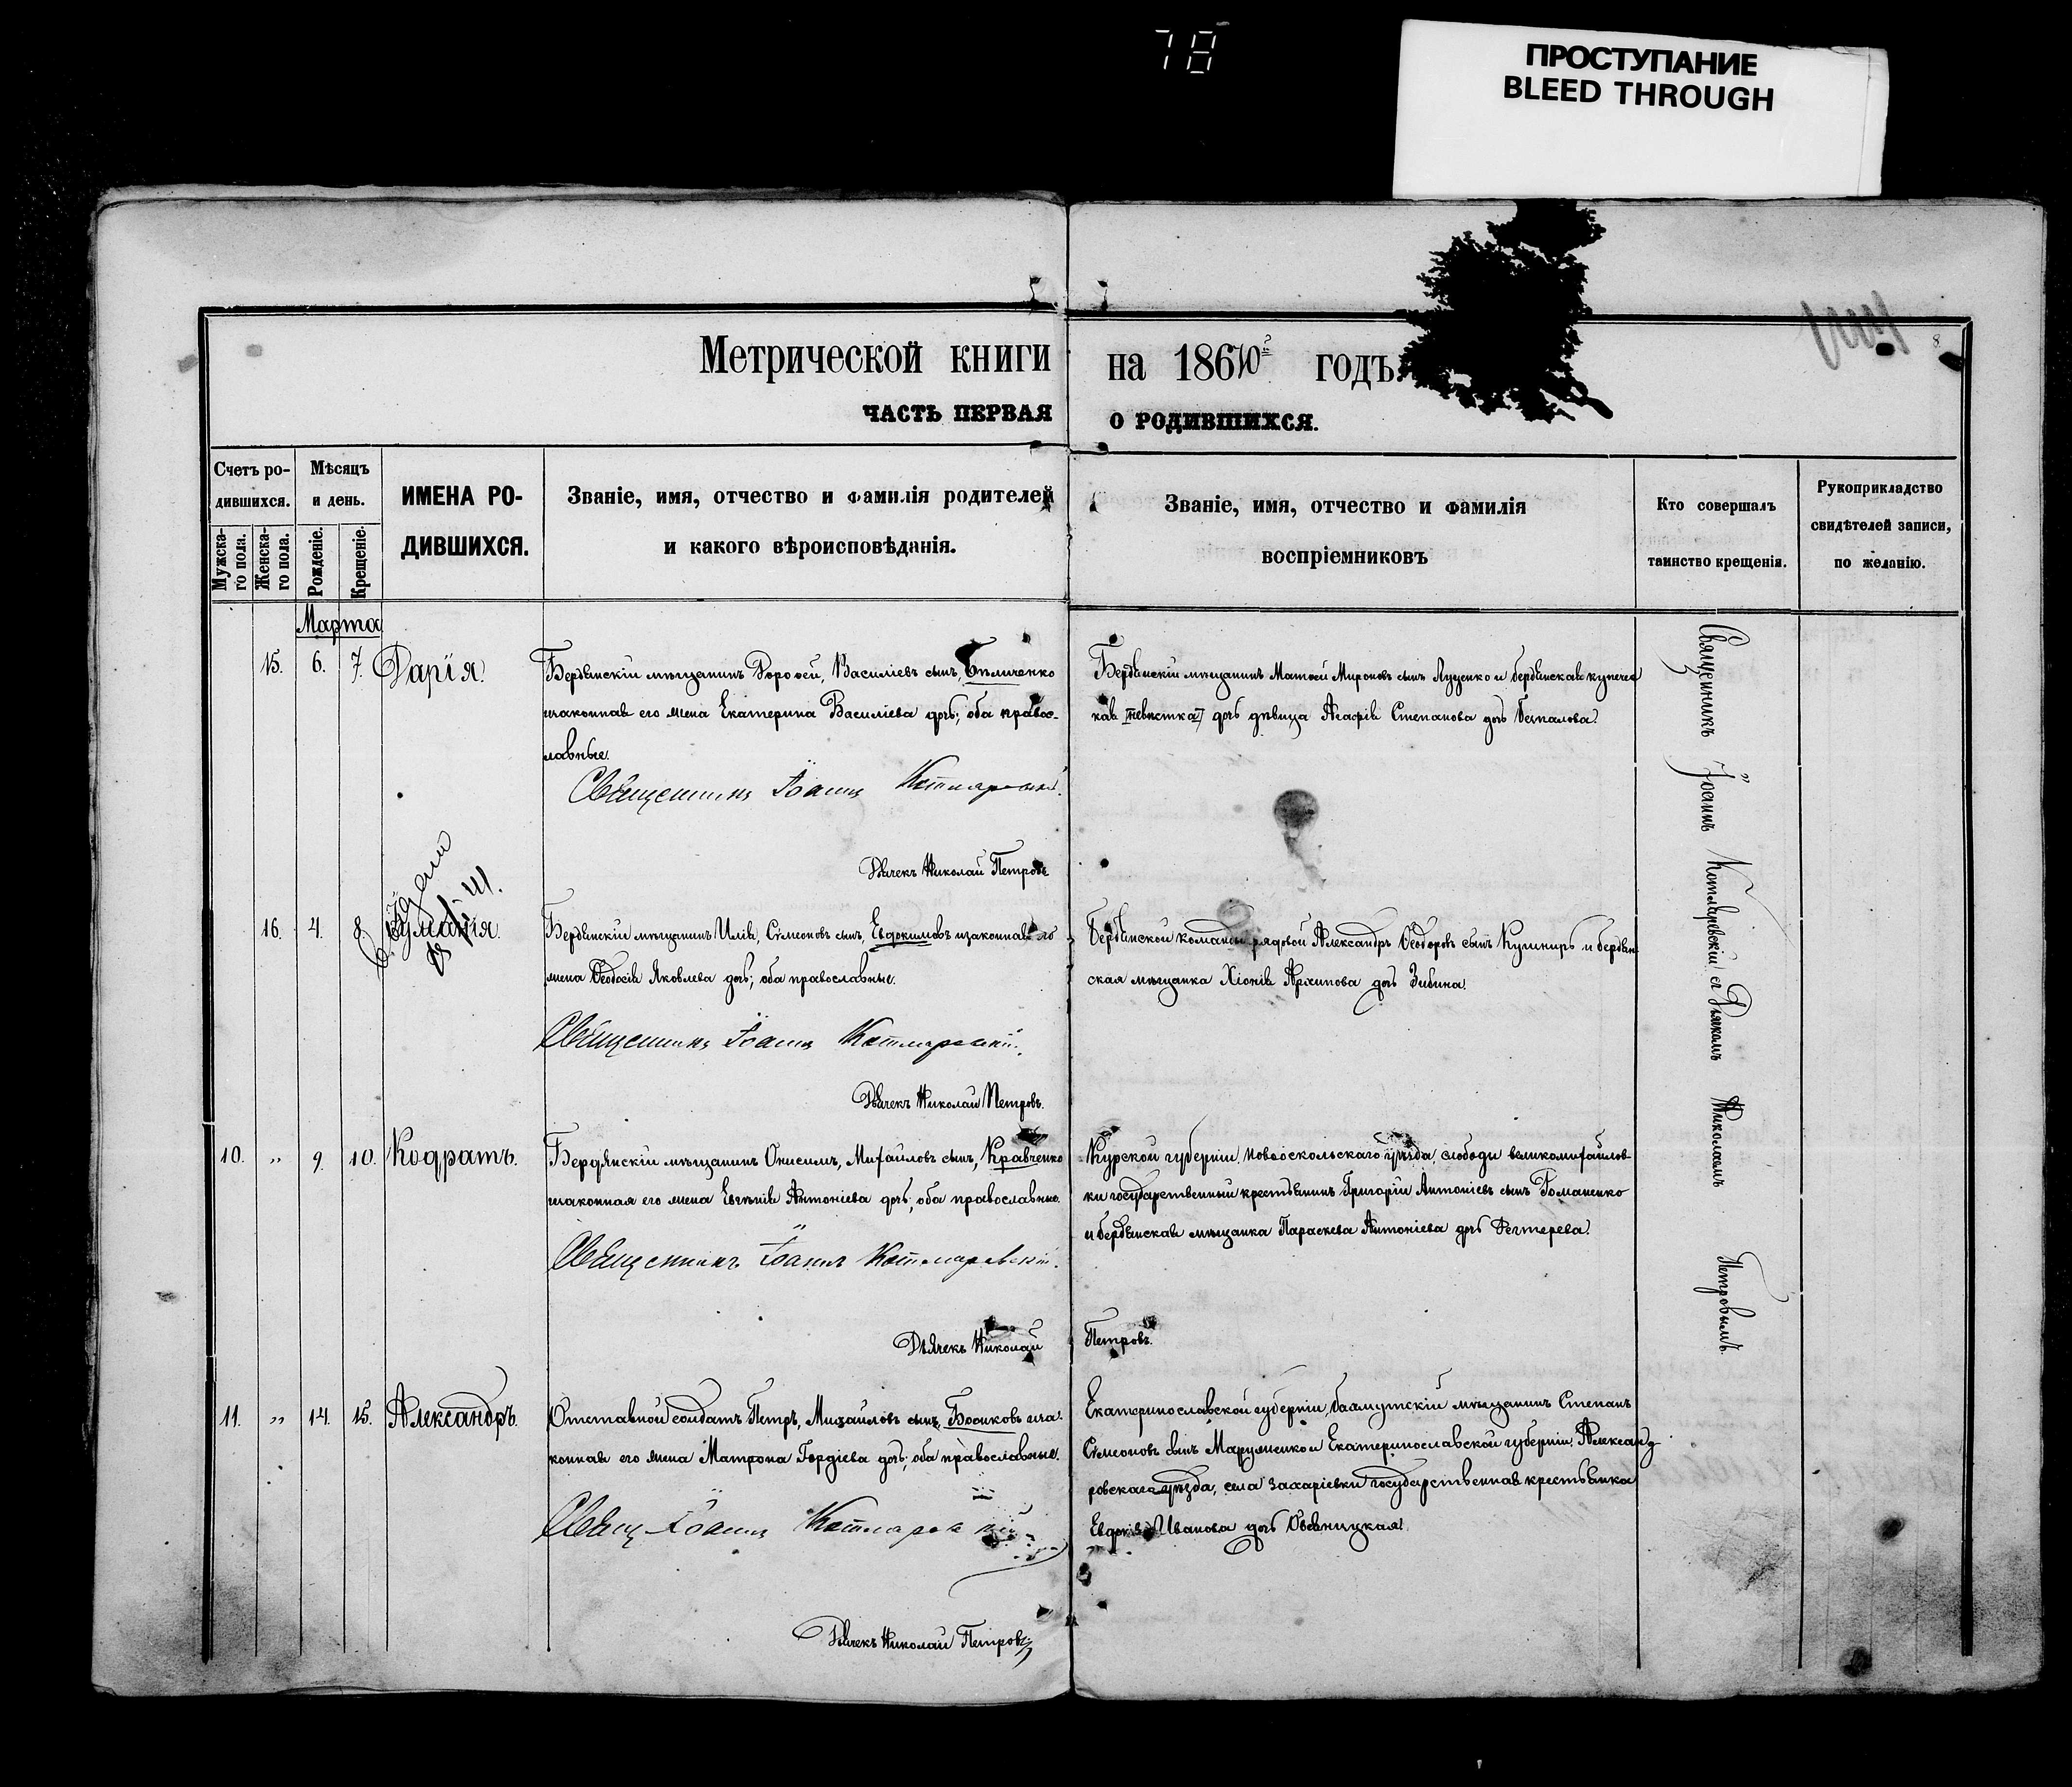 78
ПРОСТУПАНИЕ
BLEED THROUGH
Метрической книги на 1870 годъ.
ЧАСТЬ ПЕРВАЯ О РОДИВШИХСЯ.
Счетъ ро-
дившихся.
Мужска-
го пола.
Женска-
го пола.
Мѣсяцъ
и день.
Рожденіе.
Крещеніе.
ИМЕНА РО-
ДИВШИХСЯ.
Званіе, имя, отчество и фамилія родителей
и какого вѣроисповѣданія.
Званіе, имя, отчество и фамилія
воспріемниковъ
Кто совершалъ
таинство крещенія.
Рукоприкладство
свидѣтелей записи,
по желанію.
8
Марта
15. 6. 7. Дарія.
Бердянскій мѣщанинъ Дороѳей, Василіевъ сынъ,
законная его жена Екатерина Василіева дочь; оба право-
славные.
Священникъ Іоаннъ Котляревскій.
Дьячекъ Николай Петровъ
Бердянскій мѣщанинъ Матѳей Мироновъ сынъ Луценко и бердянская купечес
кая невѣстка дочь дѣвица Агафія Степанова дочь Безпалова.
16. 4. 8.
Бердянскій мѣщанинъ Илія, Сѵмеоновъ сынъ, Евдокимовъ и законная его
жена Ѳеодосія Яковлева дочь; оба православные.
Священникъ Іоаннъ Котляревскій.
Дьячекъ Николай Петровъ.
Бердянской команды рядовой Александръ Ѳеодоровъ сынъ Кушниръ и бердян
ская мѣщанка Хіонія Архипова дочь Зибина.
10. „ 9. 10. Кодратъ.
Бердянскій мѣщанинъ Онисимъ, Михайловъ сынъ, Кравченко
и законная его жена Евгенія Антоніева дочь; оба православные.
Священникъ Іоаннъ Котляревскій.
Дьячекъ Николай Петровъ.
Курской губерніи, Новооскольскаго уѣзда, слободы великомихайлов-
ки государственный крестьянинъ Григорій Антоніевъ сынъ Романенко
и бердянская мѣщанка Параскева Антоніева дочь Дегтерева.
11. „ 14. 15. Александръ.
Отставной солдатъ Петръ, Михайловъ сынъ, и за-
конная его жена Матрона Гордіева дочь; оба православные.
Свящ Іоаннъ Котляревскій
Дьячекъ Николай Петровъ
Екатеринославской губерніи, бахмутскій мѣщанинъ Степанъ
Сѵмеоновъ сынъ и Екатеринославской губерніи, Александ-
ровскаго уѣзда, села Захаріевки государственная крестьянка
Евдокія Иванова дочь
Священникъ Іоаннъ Котляревскій съ Дьячкомъ Николаемъ Петровымъ.